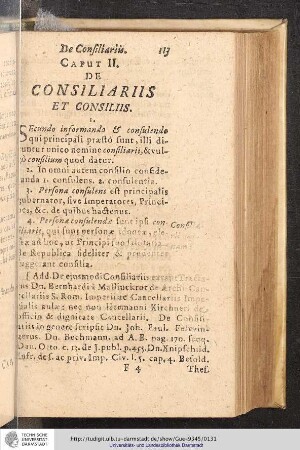 De Consiliariis. 113
CAPUT II.
DE
CONSILIARIIS
ET CONSILIIS.
1.
SEcundo informando & consulendo
qui principali præstò sunt, illi di-
untur unico nomine consiliarii, & vul-
consilium quod datur.
2. In omni autem consilio conside-
anda 1. consulens. 2. consulentia.
3. Persona consulens est principalis
gubernator, sive Imperatores, Princi-
es, &c. de quibus hactenus.
4. Persona consulendo sunt ipsi con-
iliarii, qui sunt personæ idoneæ, ele-
æ ad hoc, ut Principi suo salutaria
Republica fideliter & prudenter
ant consilia.
Consi
[ Add. De ejusmodi Consiliariis
us Dn. Bernhardi à Mallinckrot de Archi-Can-
ellariis S. Rom. Imperii &c Cancellariis Impe-
ialis aulæ; nec non Hermanni Kirchneri de
officio & dignitate Cancellarii. De Consili-
riis in genere scripsit Dn. Joh. Paul.
gerus. Dn. Bechmann. ad A. B. pag. 170. seqq.
Dan. Otto. c. 13. de J. publ. p. 453. Dn. Knipschild.
nfr. de J. ac priv. Imp. Civ. l. 5. cap. 4. Besold.
F 4 Thes.
TECHNISCHE
UNIVERSITÄT
DARMSTADT
http://tudigit.ulb.tu-darmstadt.de/show/Gue-9345/0131
Universitäts- und Landesbibliothek Darmstadt